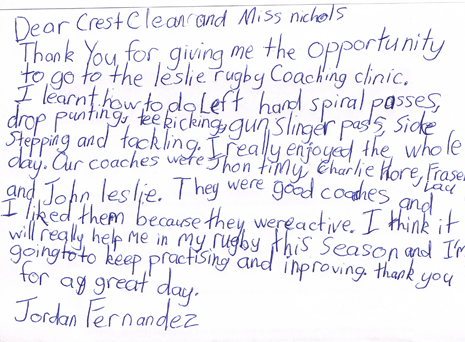 Dear CrestClean and Miss nichols
Thank You for giving me the opportunity
to go to the leslie rugby Coaching clinic.
I learnt how to do Left hand spiral passes,
drop punting, teekicking, gun Slinger pass, Side
Stepping and tackling. I really enjoyed the whole
day. Our coaches were Jhon timy, Charlie Hore, Fraser
and John leslie. They were good coaches and
I liked them because they were active. I think it
will really help me in my rugby this season and I'm
going to to keep practising and inproving. thank you
for a great day.
Jordan Fernandez